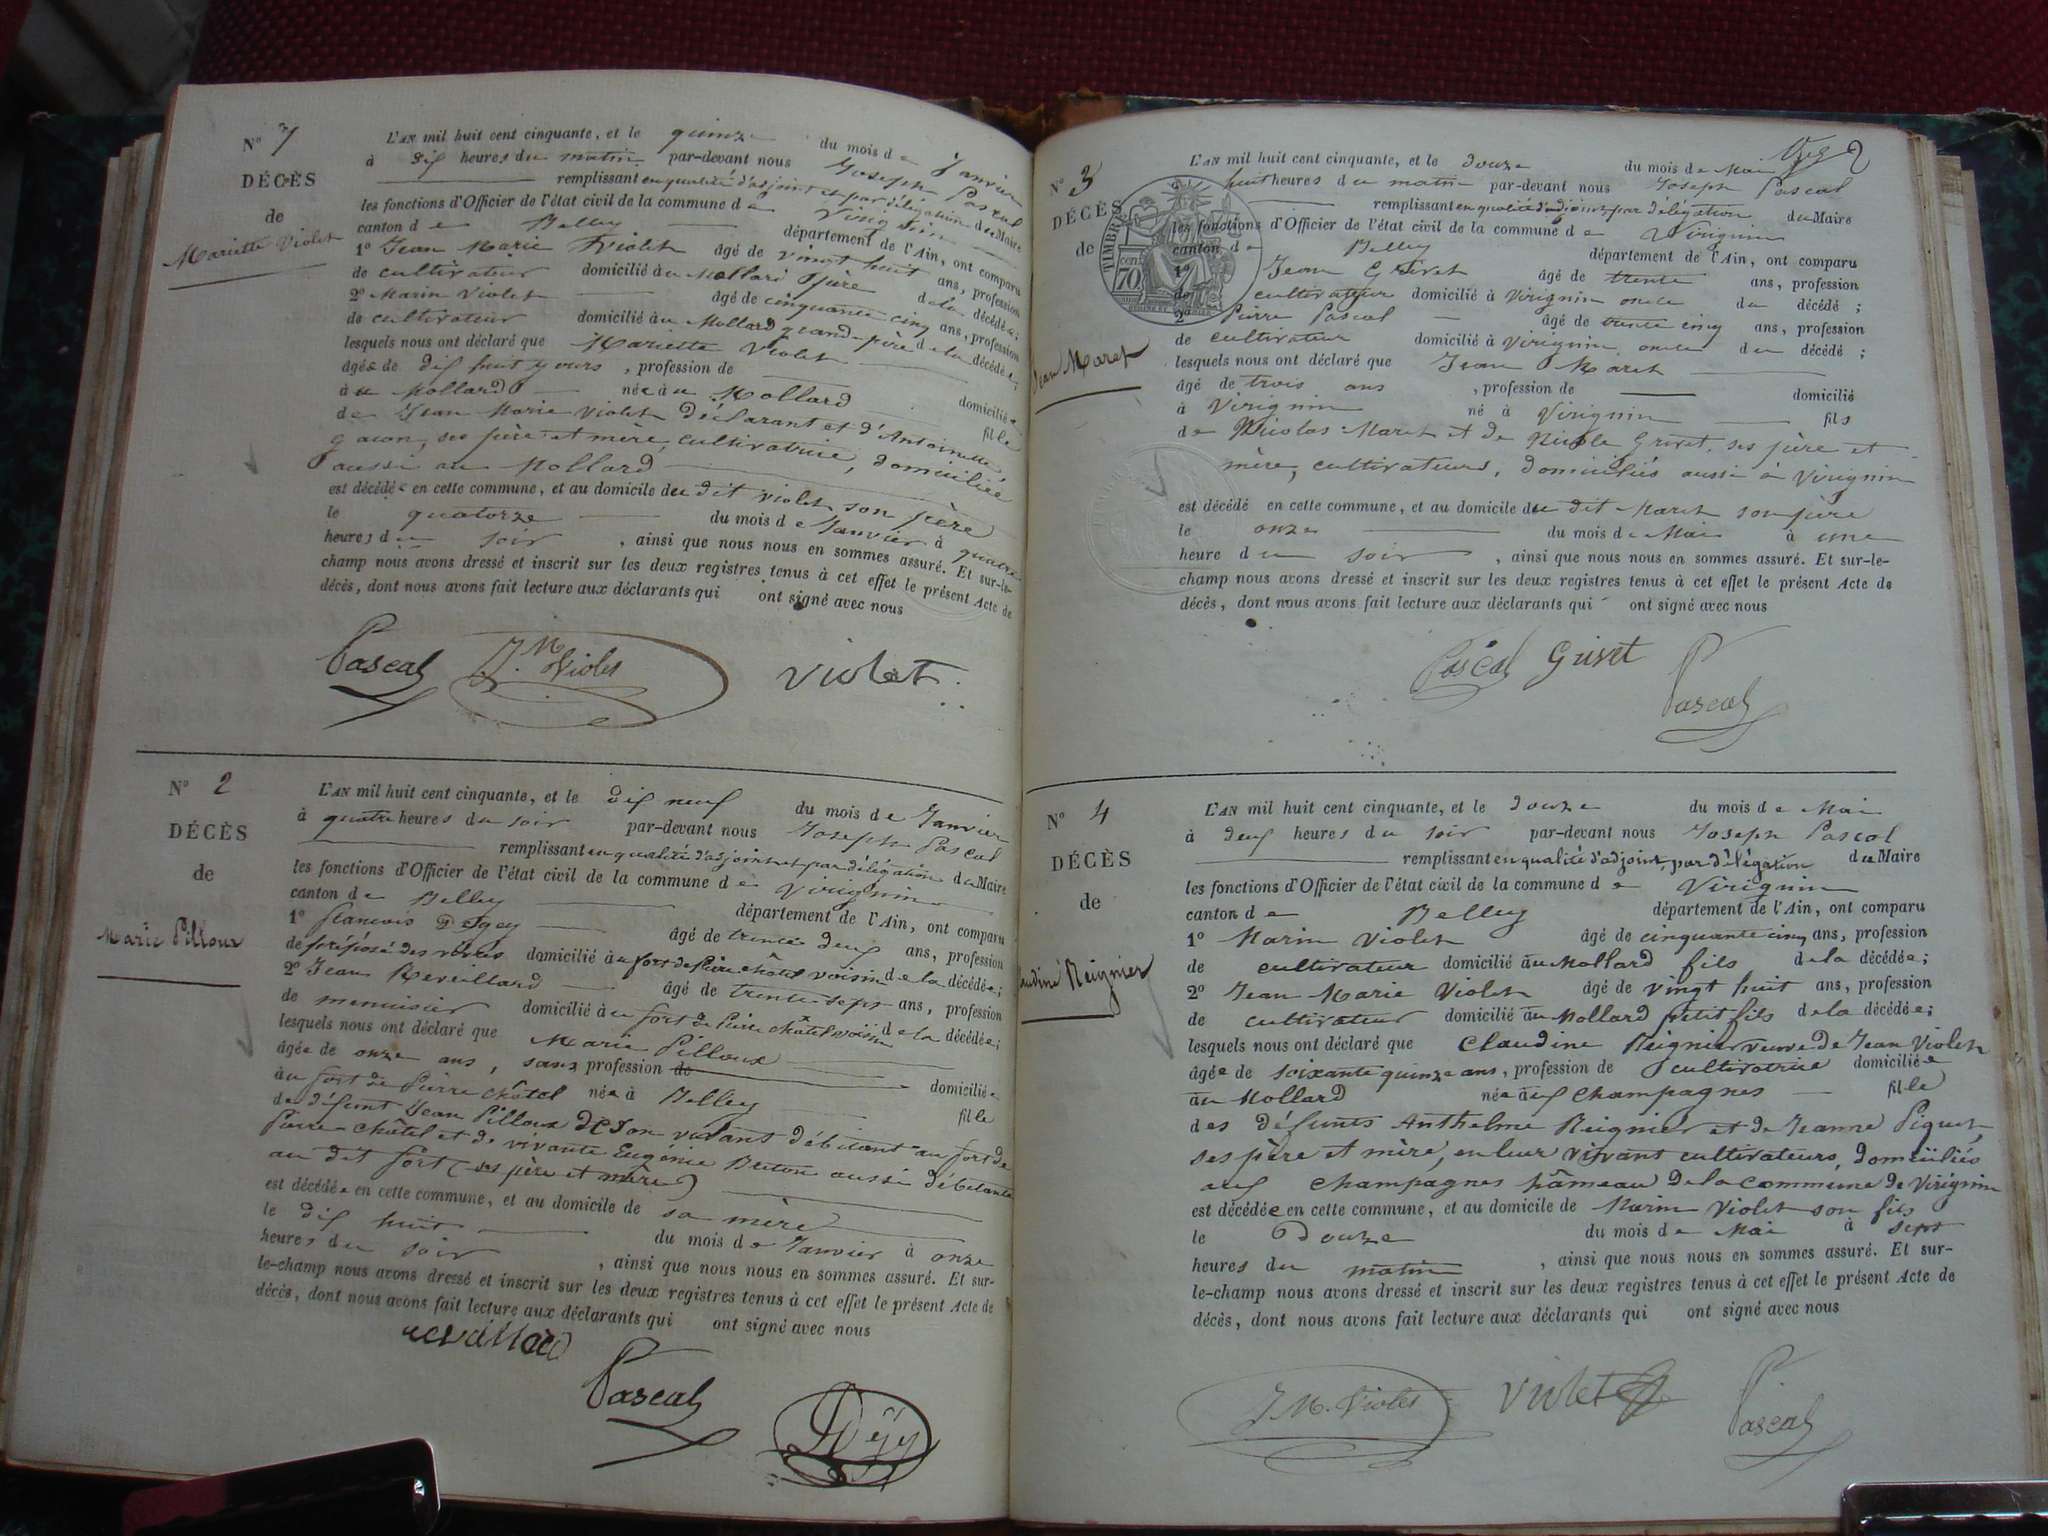 N° 1
DÉCÈS
de
Mariette Violet
L'AN mil huit cent cinquante, et le quinze du mois de Janvier
à dix heures du matin par-devant nous Joseph Pascal
remplissant en qualité d'adjoint et par délégation du Maire
les fonctions d'Officier de l'état civil de la commune de Virignin
canton de Belley département de l'Ain, ont comparu
1° Jean Marie Violet âgé de vingt huit ans, profession
de cultivateur domicilié au Mollard père de la décédée;
2° Marin Violet âgé de cinquante cinq ans, profession
de cultivateur domicilié au Mollard grand-père de la décédée;
lesquels nous ont déclaré que Mariette Violet
âgée de dix huit jours, profession de domiciliée
au Mollard née au Mollard fille
de Jean Marie Violet déclarant et d'Antoinette
ses père et mère, cultivatrice, domiciliée
aussi au Mollard
est décédée en cette commune, et au domicile du dit violet son père
le quatorze du mois de Janvier à quatre
heures du soir, ainsi que nous nous en sommes assuré. Et sur-le-
champ nous avons dressé et inscrit sur les deux registres tenus à cet effet le présent Acte de
décès, dont nous avons fait lecture aux déclarants qui ont signé avec nous
Pascal J. M. Violet violet
N° 2
DÉCÈS
de
Marie Pilloux
L'AN mil huit cent cinquante, et le dix neuf du mois de Janvier
à quatre heures du soir par-devant nous Joseph Pascal
remplissant en qualité d'adjoint et par délégation du Maire
les fonctions d'Officier de l'état civil de la commune de Virignin
canton de Belley département de l'Ain, ont comparu
1° François Degey âgé de trente deux ans, profession
de préposé des vivres domicilié au fort de Pierre Châtel voisin de la décédée;
2° Jean Reveillard âgé de trente sept ans, profession
de menuisier domicilié au fort de Pierre Châtel voisin de la décédée;
lesquels nous ont déclaré que Marie Pilloux
âgée de onze ans, sans profession de domiciliée
au fort de Pierre Châtel née à Belley fille
de défunt Jean Pilloux de son vivant débitant au fort de
Pierre-Châtel et de vivante Eugénie Breton aussi débitante
au dit fort (ses père et mère)
est décédée en cette commune, et au domicile de sa mère
le dix huit du mois de Janvier à onze
heures du soir, ainsi que nous nous en sommes assuré. Et sur-
le-champ nous avons dressé et inscrit sur les deux registres tenus à cet effet le présent Acte de
décès, dont nous avons fait lecture aux déclarants qui ont signé avec nous
Pascal Degey
2
N° 3
DÉCÈS
de
Jean Maret
TIMBRE
70
L'AN mil huit cent cinquante, et le douze du mois de Mai
huit heures du matin par-devant nous Joseph Pascal
remplissant en qualité d'adjoint par délégation du Maire
les fonctions d'Officier de l'état civil de la commune de Virignin
canton de Belley département de l'Ain, ont comparu
1° Jean Grivet âgé de trente ans, profession
de cultivateur domicilié à Virignin oncle du décédé;
2° Pierre Pascal âgé de trente cinq ans, profession
de cultivateur domicilié à Virignin oncle du décédé;
lesquels nous ont déclaré que Jean Maret
âgé de trois ans, profession de domicilié
à Virignin né à Virignin fils
de Nicolas Maret et de Nicole Grivet, ses père et
mère, cultivateurs, domiciliés aussi à Virignin
est décédé en cette commune, et au domicile du dit Maret son père
le onze du mois de Mai à une
heure du soir, ainsi que nous nous en sommes assuré. Et sur-le-
champ nous avons dressé et inscrit sur les deux registres tenus à cet effet le présent Acte de
décès, dont nous avons fait lecture aux déclarants qui ont signé avec nous
Pascal Grivet Pascal
N° 4
DÉCÈS
de
Claudine Reignier
L'AN mil huit cent cinquante, et le douze du mois de Mai
à deux heures du soir par-devant nous Joseph Pascal
remplissant en qualité d'adjoint, par délégation du Maire
les fonctions d'Officier de l'état civil de la commune de Virignin
canton de Belley département de l'Ain, ont comparu
1° Marin Violet âgé de cinquante cinq ans, profession
de cultivateur domicilié au Mollard fils de la décédée;
2° Jean Marie Violet âgé de vingt huit ans, profession
de cultivateur domicilié au Mollard petit fils de la décédée;
lesquels nous ont déclaré que Claudine Reignier veuve de Jean Violet
âgée de soixante quinze ans, profession de cultivatrice domiciliée
au Mollard née aux champagnes fille
des défunts Anthelme Reignier et de Jeanne Piquet,
ses père et mère, en leur vivant cultivateurs, domiciliés
aux champagnes hâmeau de la commune de Virignin
est décédée en cette commune, et au domicile de Marin Violet son fils
le Douze du mois de Mai à sept
heures du matin, ainsi que nous nous en sommes assuré. Et sur-
le-champ nous avons dressé et inscrit sur les deux registres tenus à cet effet le présent Acte de
décès, dont nous avons fait lecture aux déclarants qui ont signé avec nous
J M. Violet violet Pascal